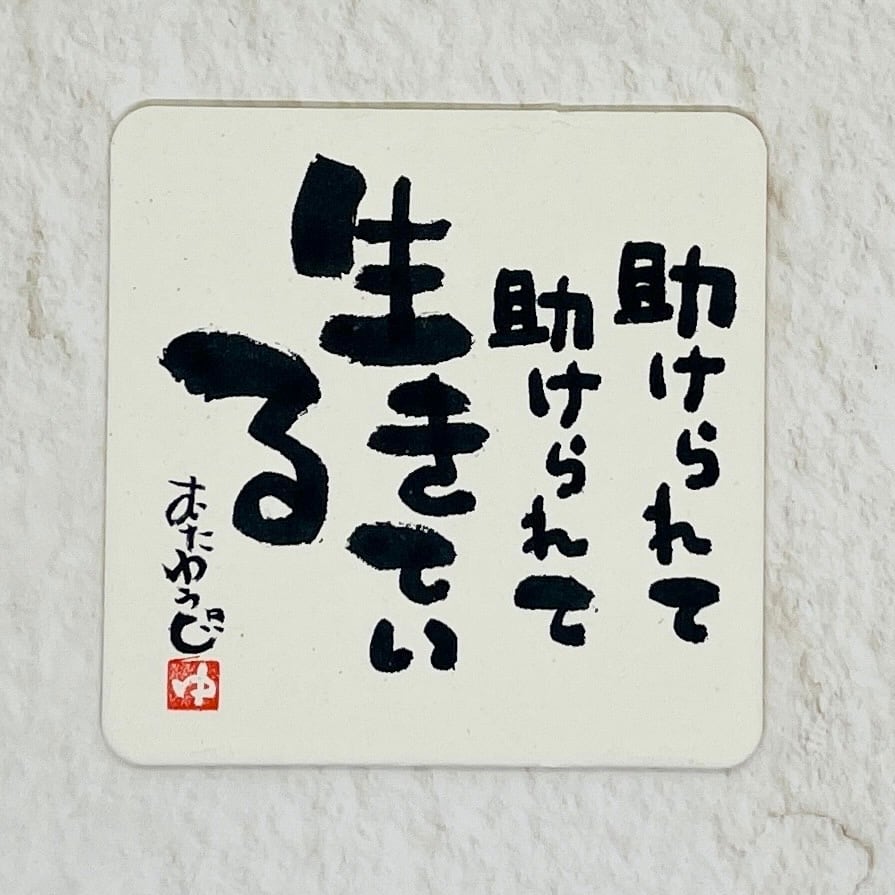 助けられて
助けられて
生きてい
る
おたゆうじ
ゆ